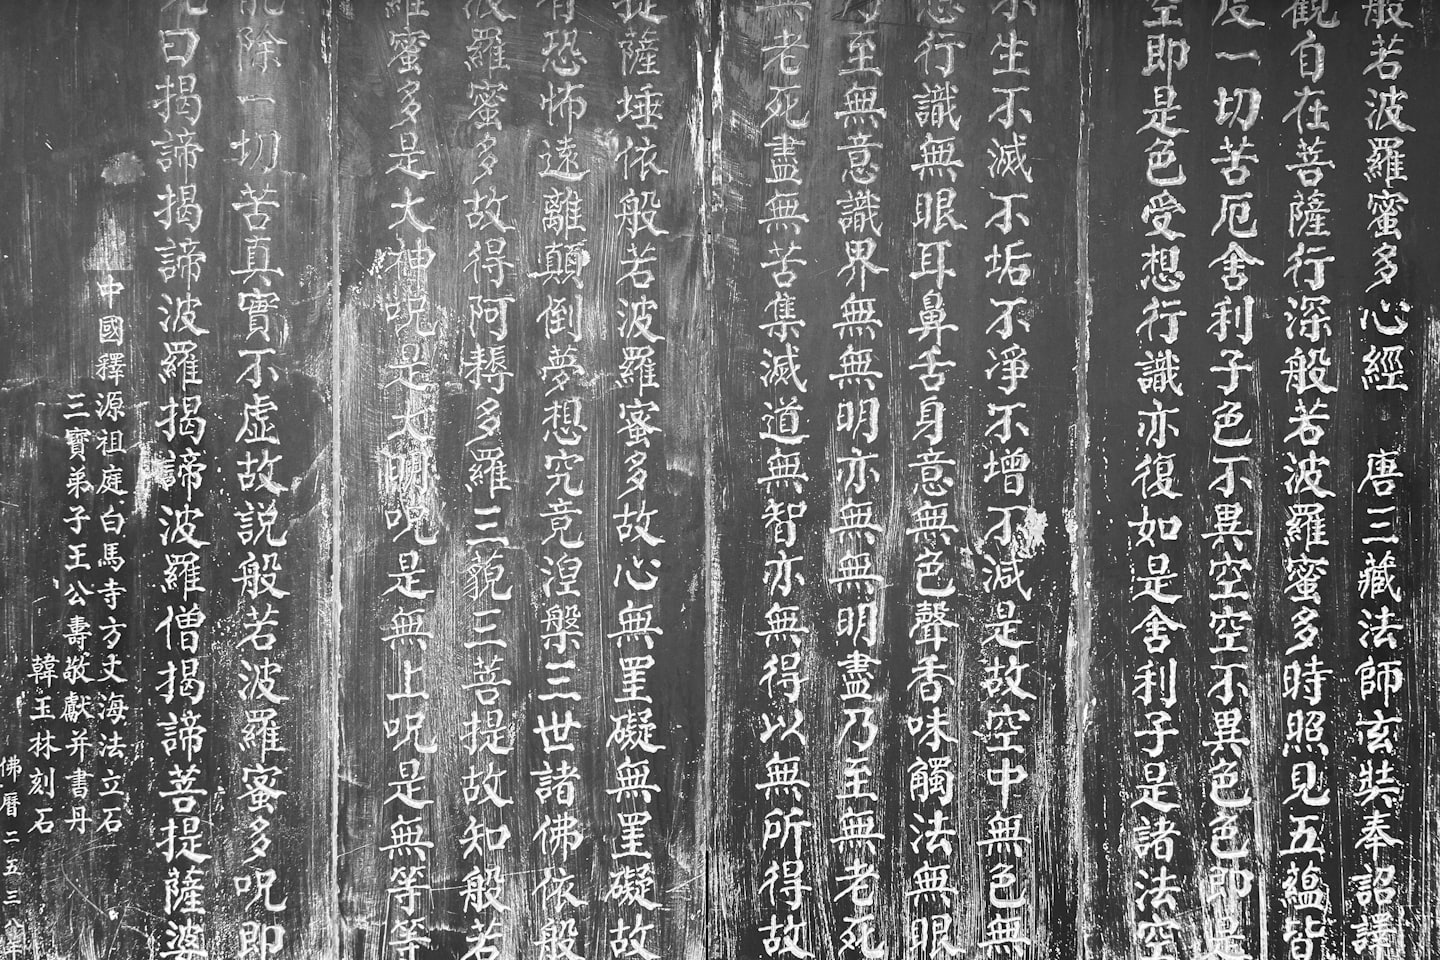 般若波羅蜜多心經　唐三藏法師玄奘奉詔譯
觀自在菩薩行深般若波羅蜜多時照見五蘊皆
度一切苦厄舍利子色不異空空不異色色即是
空即是色受想行識亦復如是舍利子是諸法空
不生不滅不垢不淨不增不減是故空中無色無
想行識無眼耳鼻舌身意無色聲香味觸法無眼
乃至無意識界無無明亦無無明盡乃至無老死
無老死盡無苦集滅道無智亦無得以無所得故
提薩埵依般若波羅蜜多故心無罣礙無罣礙故
有恐怖遠離顛倒夢想究竟涅槃三世諸佛依般
波羅蜜多故得阿耨多羅三藐三菩提故知般若
羅蜜多是大神咒是大明咒是無上咒是無等等
能除一切苦真實不虛故說般若波羅蜜多咒即
曰揭諦揭諦波羅揭諦波羅僧揭諦菩提薩婆
中國釋源祖庭白馬寺方丈海法立石
三寶弟子王公壽敬獻并書丹
韓玉林刻石
佛曆二五三八年